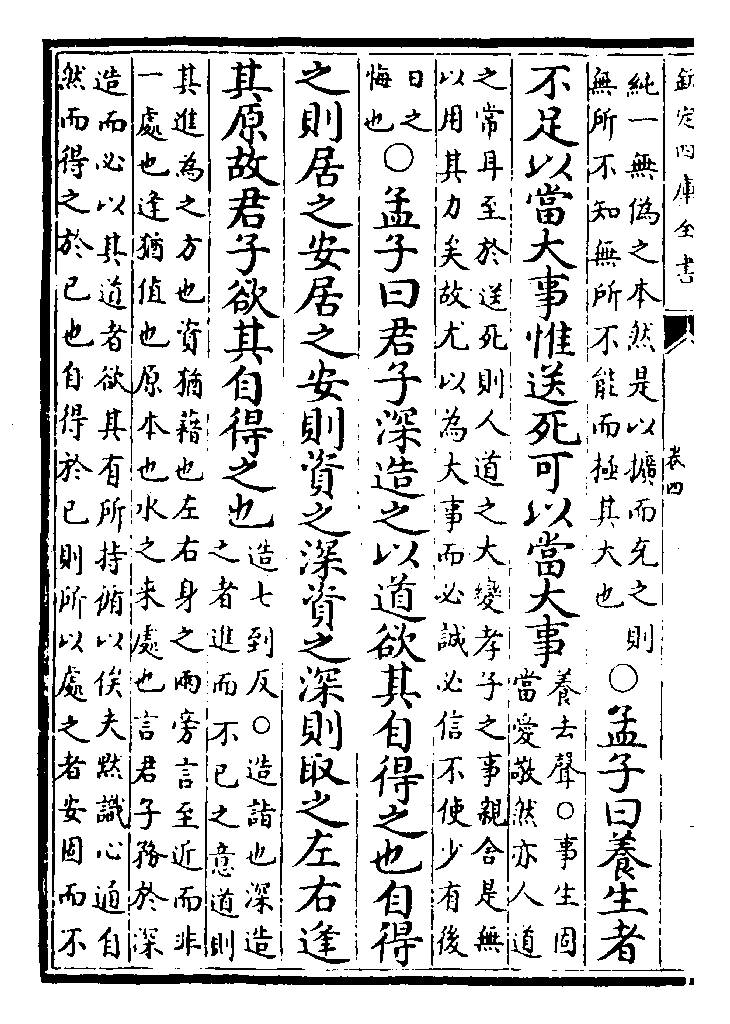 欽定四庫全書
卷四
純一無偽之本然是以擴而充之則
無所不知無所不能而極其大也
○孟子曰養生者
不足以當大事惟送死可以當大事
養去聲○事生固
當愛敬然亦人道
之常耳至於送死則人道之大變孝子之事親舍是無
以用其力矣故尤以為大事而必誠必信不使少有後
日之
悔也
○孟子曰君子深造之以道欲其自得之也自得
之則居之安居之安則資之深資之深則取之左右逢
其原故君子欲其自得之也
造七到反○造詣也深造
之者進而不已之意道則
其進為之方也資猶藉也左右身之兩旁言至近而非
一處也逢猶值也原本也水之来處也言君子務於深
造而必以其道者欲其有所持循以俟夫黙識心通自
然而得之於已也自得於已則所以處之者安固而不